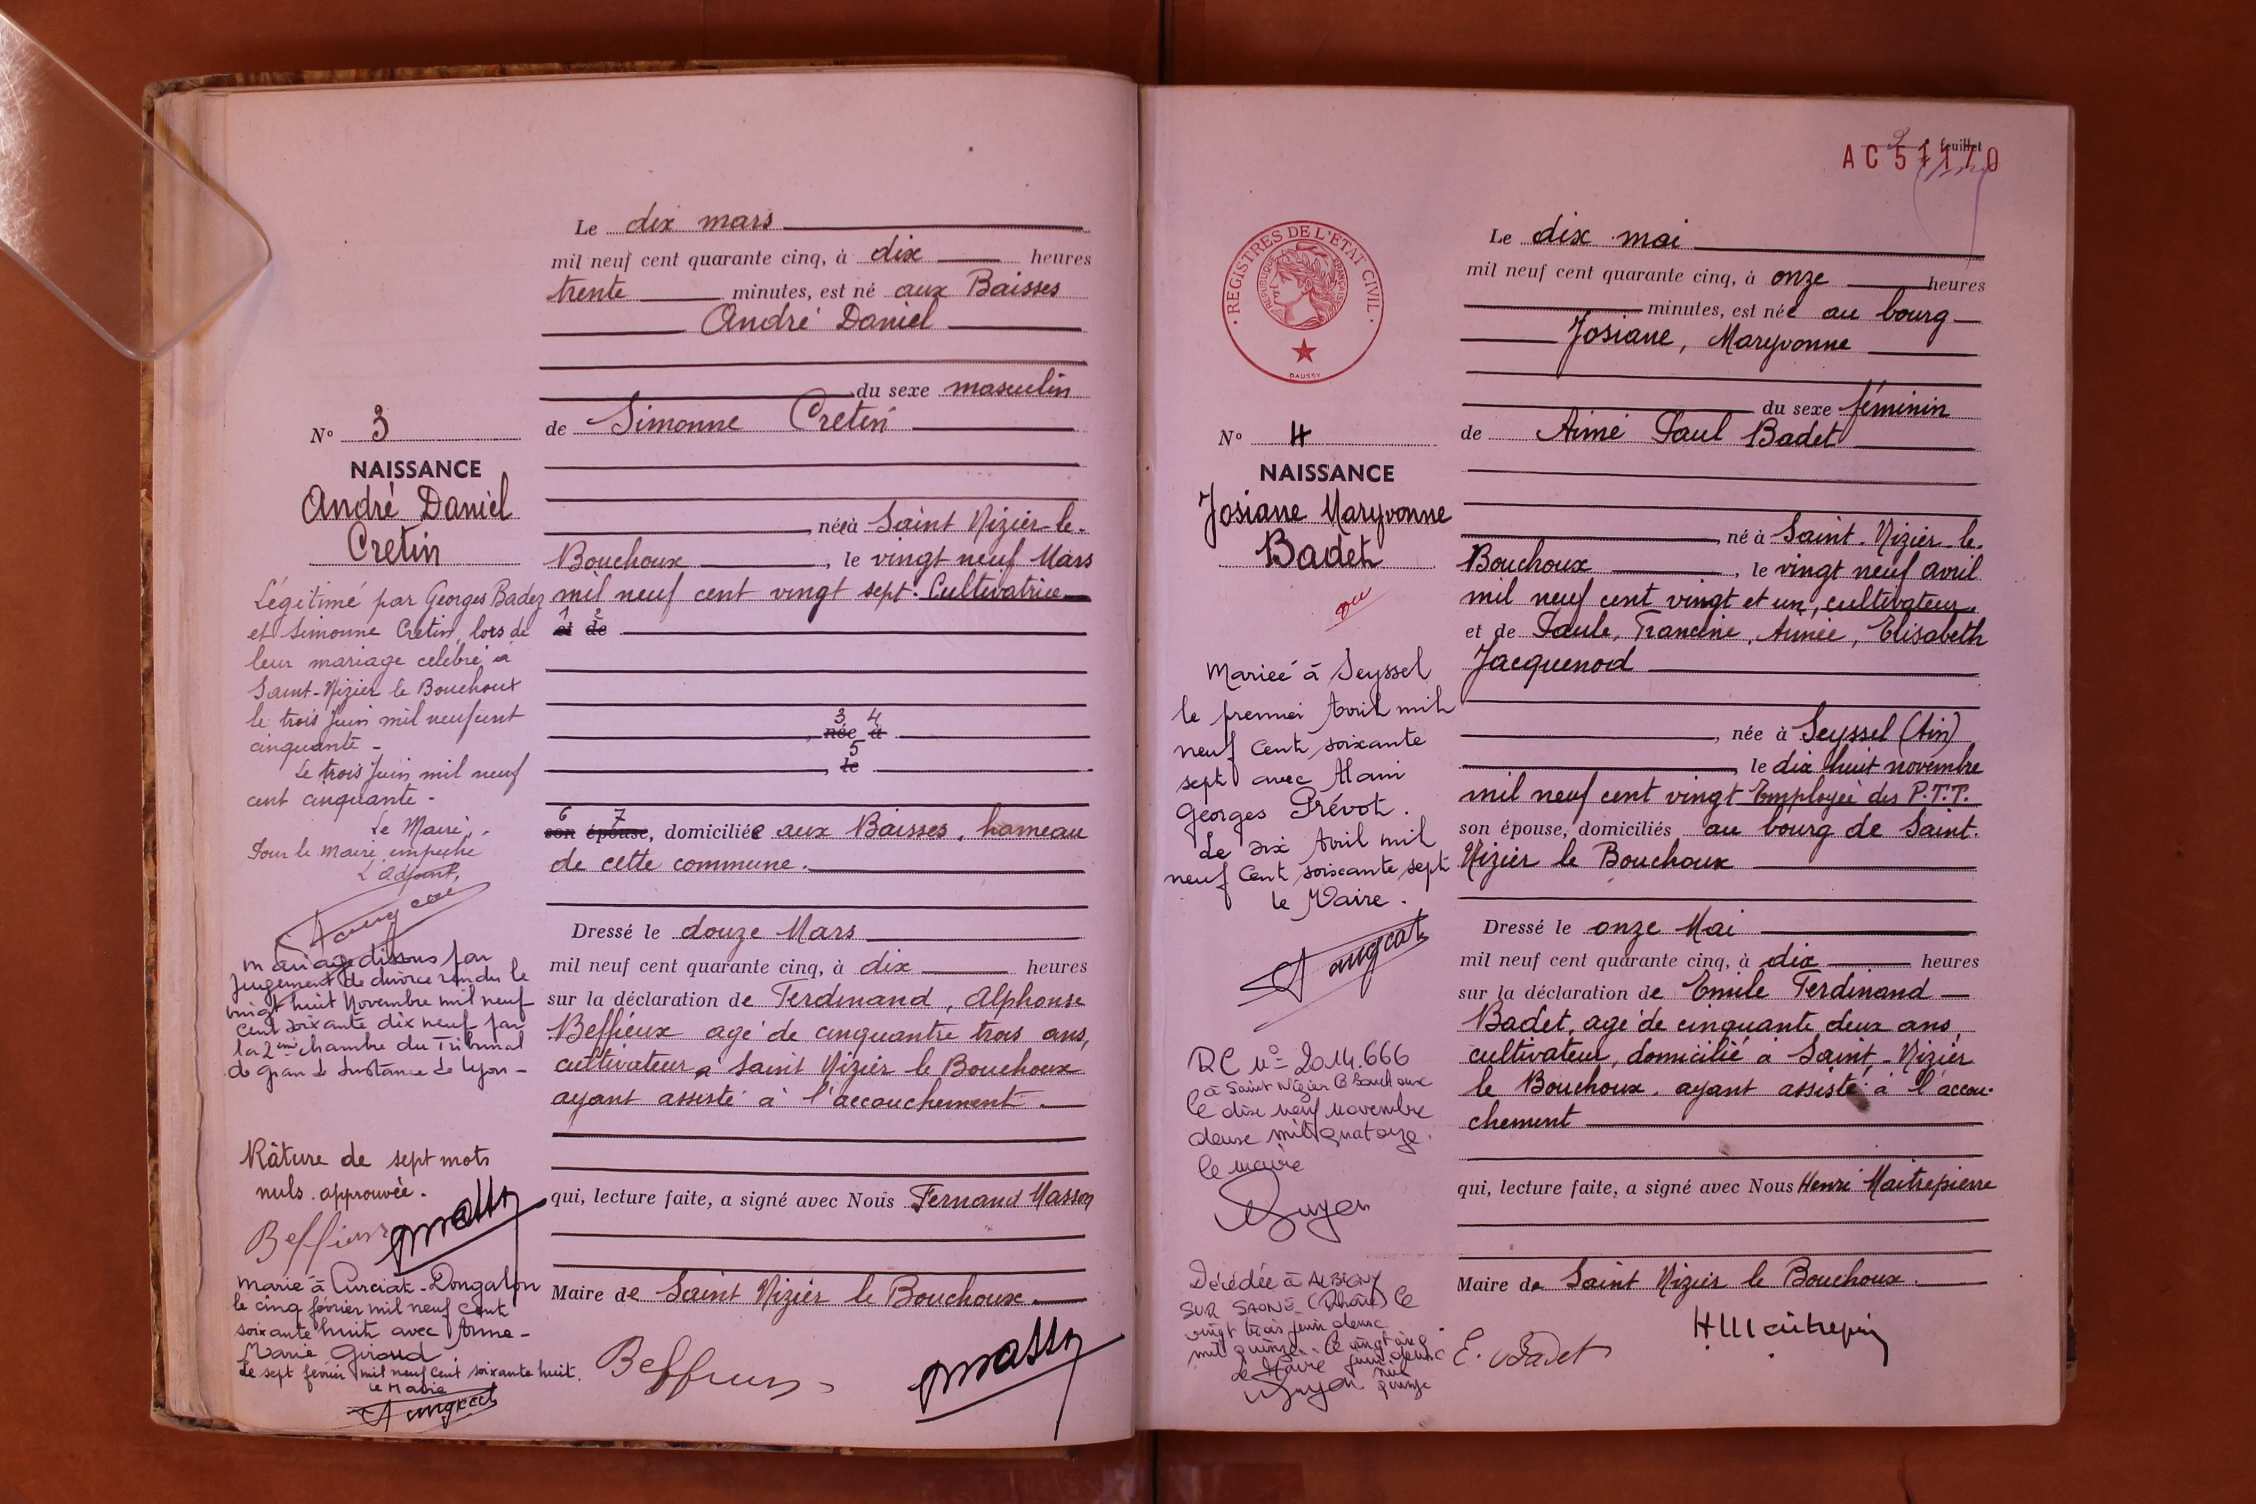 Le dix mars
mil neuf cent quarante cinq, à dix heures
trente minutes, est né aux Baisses
André Daniel
du sexe masculin
N° 3
de Simonne Cretin
NAISSANCE
André Daniel
Cretin
née à Saint Nizier-le-
Bouchoux, le vingt neuf Mars
mil neuf cent vingt sept. Cultivatrice
1 2
et de
3 4
, née à
5
, le
6 7
son épouse, domiciliée aux Baisses, hameau
de cette commune.
Légitimé par Georges Badez
et Simonne Cretin, lors de
leur mariage célébré à
Saint-Nizier le Bouchoux
le trois Juin mil neuf cent
cinquante -
Le trois Juin mil neuf
cent cinquante -
Le Maire,
Pour le Maire empêché
L'adjoint,
Mariage dissous par
Jugement de divorce rendu le
vingt huit Novembre mil neuf
cent soixante dix neuf par
la 2ème chambre du Tribunal
de grande Instance de Lyon -
Dressé le douze Mars
mil neuf cent quarante cinq, à dix heures
sur la déclaration de Ferdinand, Alphonse
Beffieux agé de cinquantre trois ans,
cultivateur à Saint Nizier le Bouchoux
ayant assisté à l'accouchement
Râture de sept mots
nuls approuvée.
Beffieux
qui, lecture faite, a signé avec Nous Fernand Masson
Maire de Saint Nizier le Bouchoux
Marié à Curciat-Dongalon
le cinq février mil neuf cent
soixante huit avec Anne-
Marie Giroud.
Le sept février mil neuf cent soixante huit.
Le Maire
Beffieux
2e feuillet
AC 51170
REGISTRES DE L'ÉTAT CIVIL
RÉPUBLIQUE FRANÇAISE
DAUSSY
Le dix mai
mil neuf cent quarante cinq, à onze heures
minutes, est née au bourg
Josiane, Maryvonne
du sexe féminin
N° 4
de Aimé Paul Badet
NAISSANCE
Josiane Maryvonne
Badet
, né à Saint-Nizier-le-
Bouchoux, le vingt neuf avril
mil neuf cent vingt et un, cultivateur
et de Paule, Francine, Aimée, Elisabeth
Jacquenod
, née à Seyssel (Ain)
, le dix huit novembre
mil neuf cent vingt Employée des P.T.T.
son épouse, domiciliés au bourg de Saint-
Nizier le Bouchoux
Mariée à Seyssel
le premier Avril mil
neuf cent soixante
sept avec Alain
Georges Prévot.
Le six Avril mil
neuf cent soixante sept
le Maire.
Dressé le onze Mai
mil neuf cent quarante cinq, à dix heures
sur la déclaration de Emile Ferdinand
Badet, agé de cinquante deux ans,
cultivateur, domicilié à Saint-Nizier
le Bouchoux, ayant assisté à l'accou-
chement
RC N° 2014.666
à Saint Nizier le Bouchoux
le dix neuf novembre
deux mil quatorze.
le maire
qui, lecture faite, a signé avec Nous Henri Maitrepierre
Maire de Saint Nizier le Bouchoux
Décédée à ALBIGNY
SUR SAONE (Rhône) le
vingt trois juin deux
mil quinze. Le vingt cinq
juin deux
mil
quinze
le Maire
E. Badet